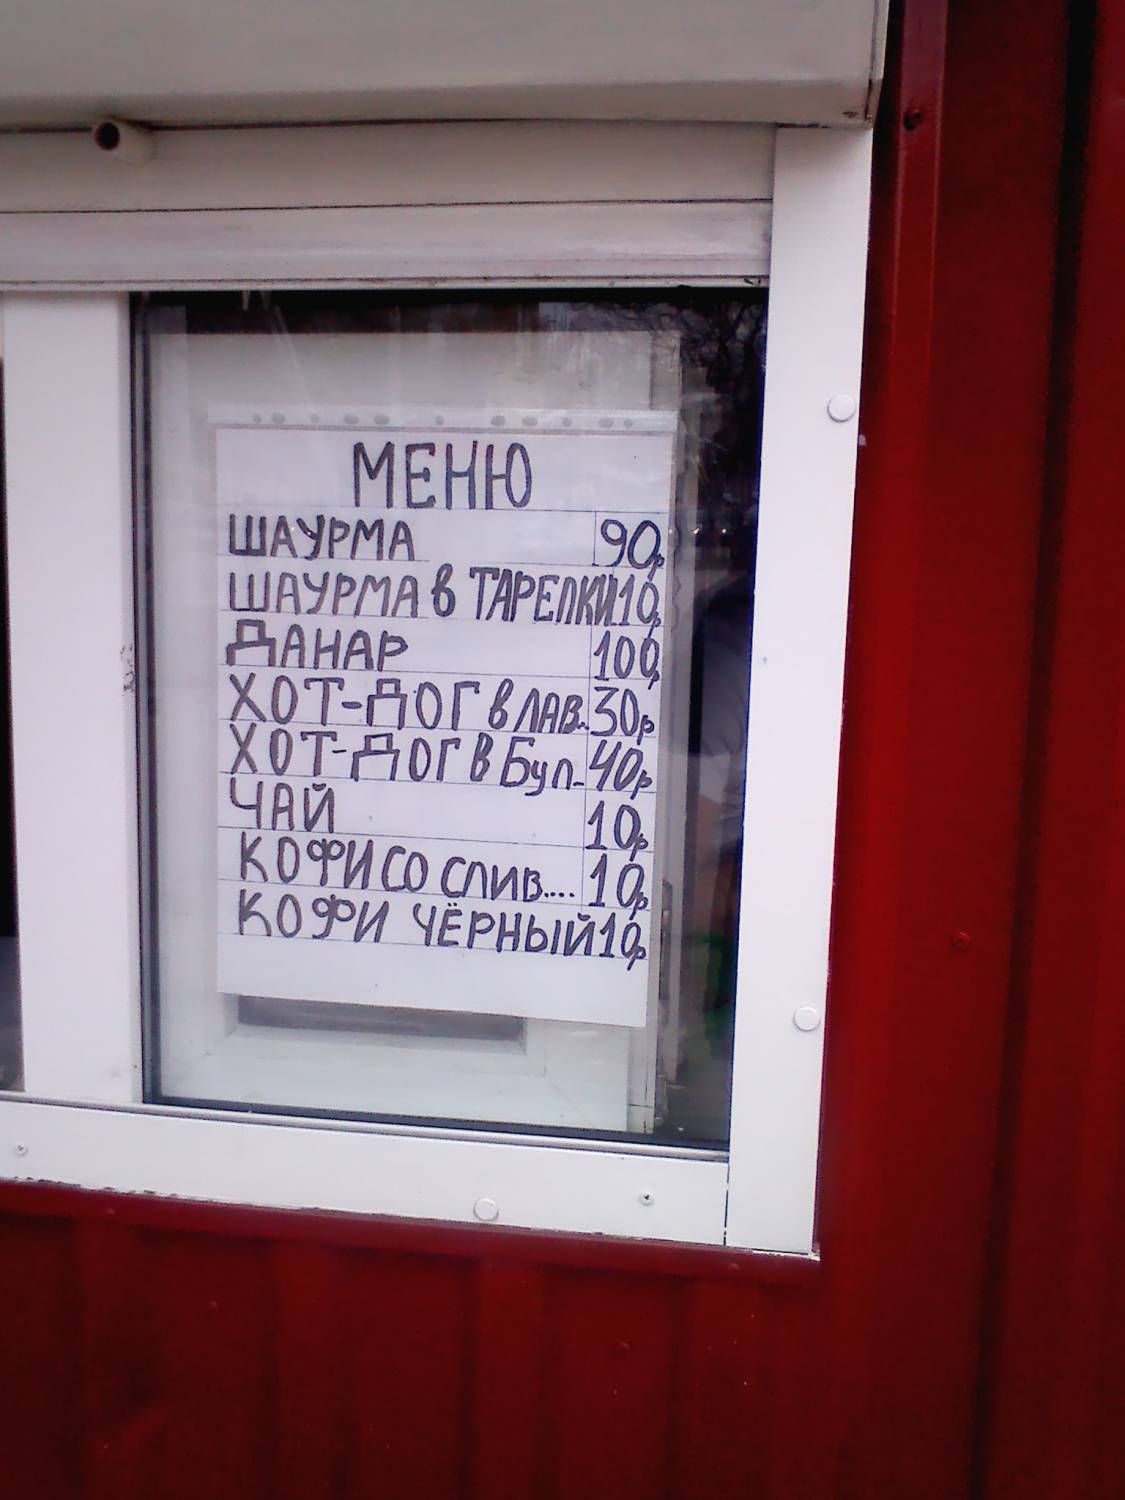 МЕНЮ
ШАУРМА 90р
ШАУРМА В ТАРЕЛКИ 10р
ДАНАР 100р
ХОТ-ДОГ В ЛАВ.. 30р
ХОТ-ДОГ В Бул- 40р
ЧАЙ 10р
КОФИ СО СЛИВ.... 10р
КОФИ ЧЁРНЫЙ 10р